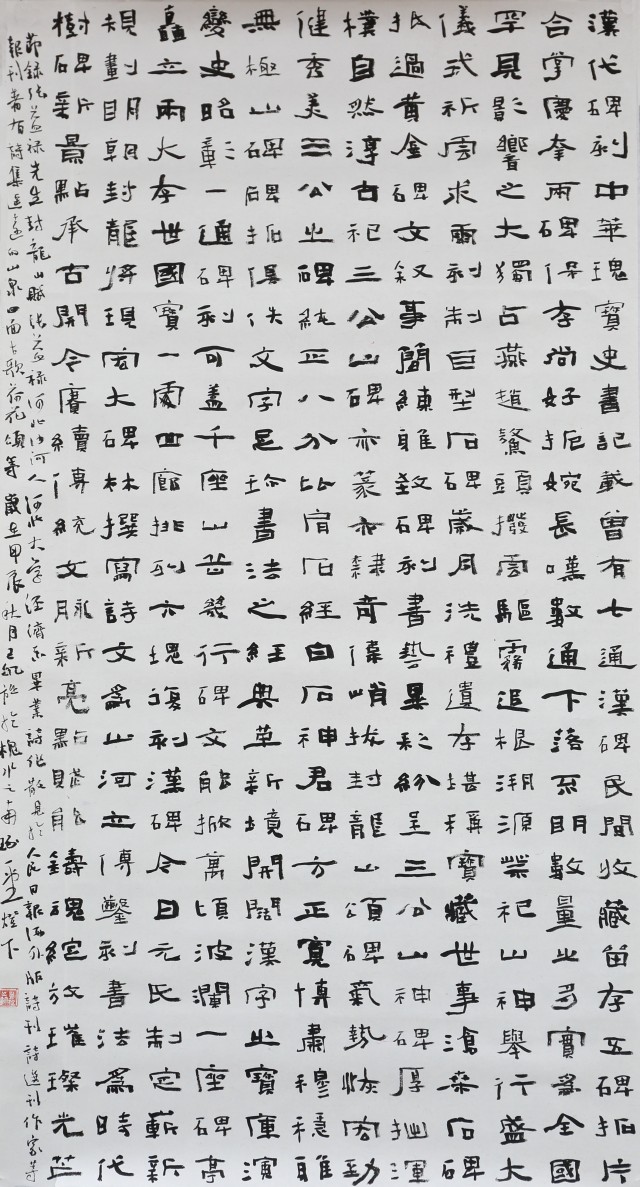 漢代碑刻中華瑰寶史書記載曾有七通漢碑民間收藏留存五碑拓片
合掌慶奉兩碑保存尚好扼婉長嘆數通下落不明數量之多實為全國
罕見影響之大獨占燕趙鰲頭撥雲驅霧追根溯源祟祀山神舉行盛大
儀式祈雲求雨刻制巨型石碑歲月洗禮遺存堪稱寶藏世事滄桑石碑
抵過黃金碑文敘事簡練雅致碑刻書藝異彩紛呈三公山神碑厚拙渾
樸自然淳古祀三公山碑亦篆亦隸奇偉峭拔封龍山頌碑氣勢恢宏勁
健秀美三公之碑純正八分比肩石經白石神君碑方正寬博肅穆穩雅
無極山碑碑拓俱佚文字足珍書法之經典草新境開闊漢字之寶庫演
變史昭彰一通碑刻可蓋千座山岳幾行碑文能掀萬頃波瀾一座碑亭
矗立兩大存世國寶一處四廊排列六塊復刻漢碑今日元氏制定嶄新
規劃明朝封龍將現宏大碑林撰寫詩文為山河立傳鑿刻書法為時代
樹碑新景點承古開今賡續傳統文脈新亮點賦能鑄魂綻放璀璨光芒
節錄張益祿先生封龍山賦張益祿河北沙河人河北大學經濟系畢業詩作散見於人民日報海外版詩刊詩選刊作家等
報刊著有詩集遠去的山泉四面古歌荷花頌等歲在甲辰秋月於槐水之南燈下